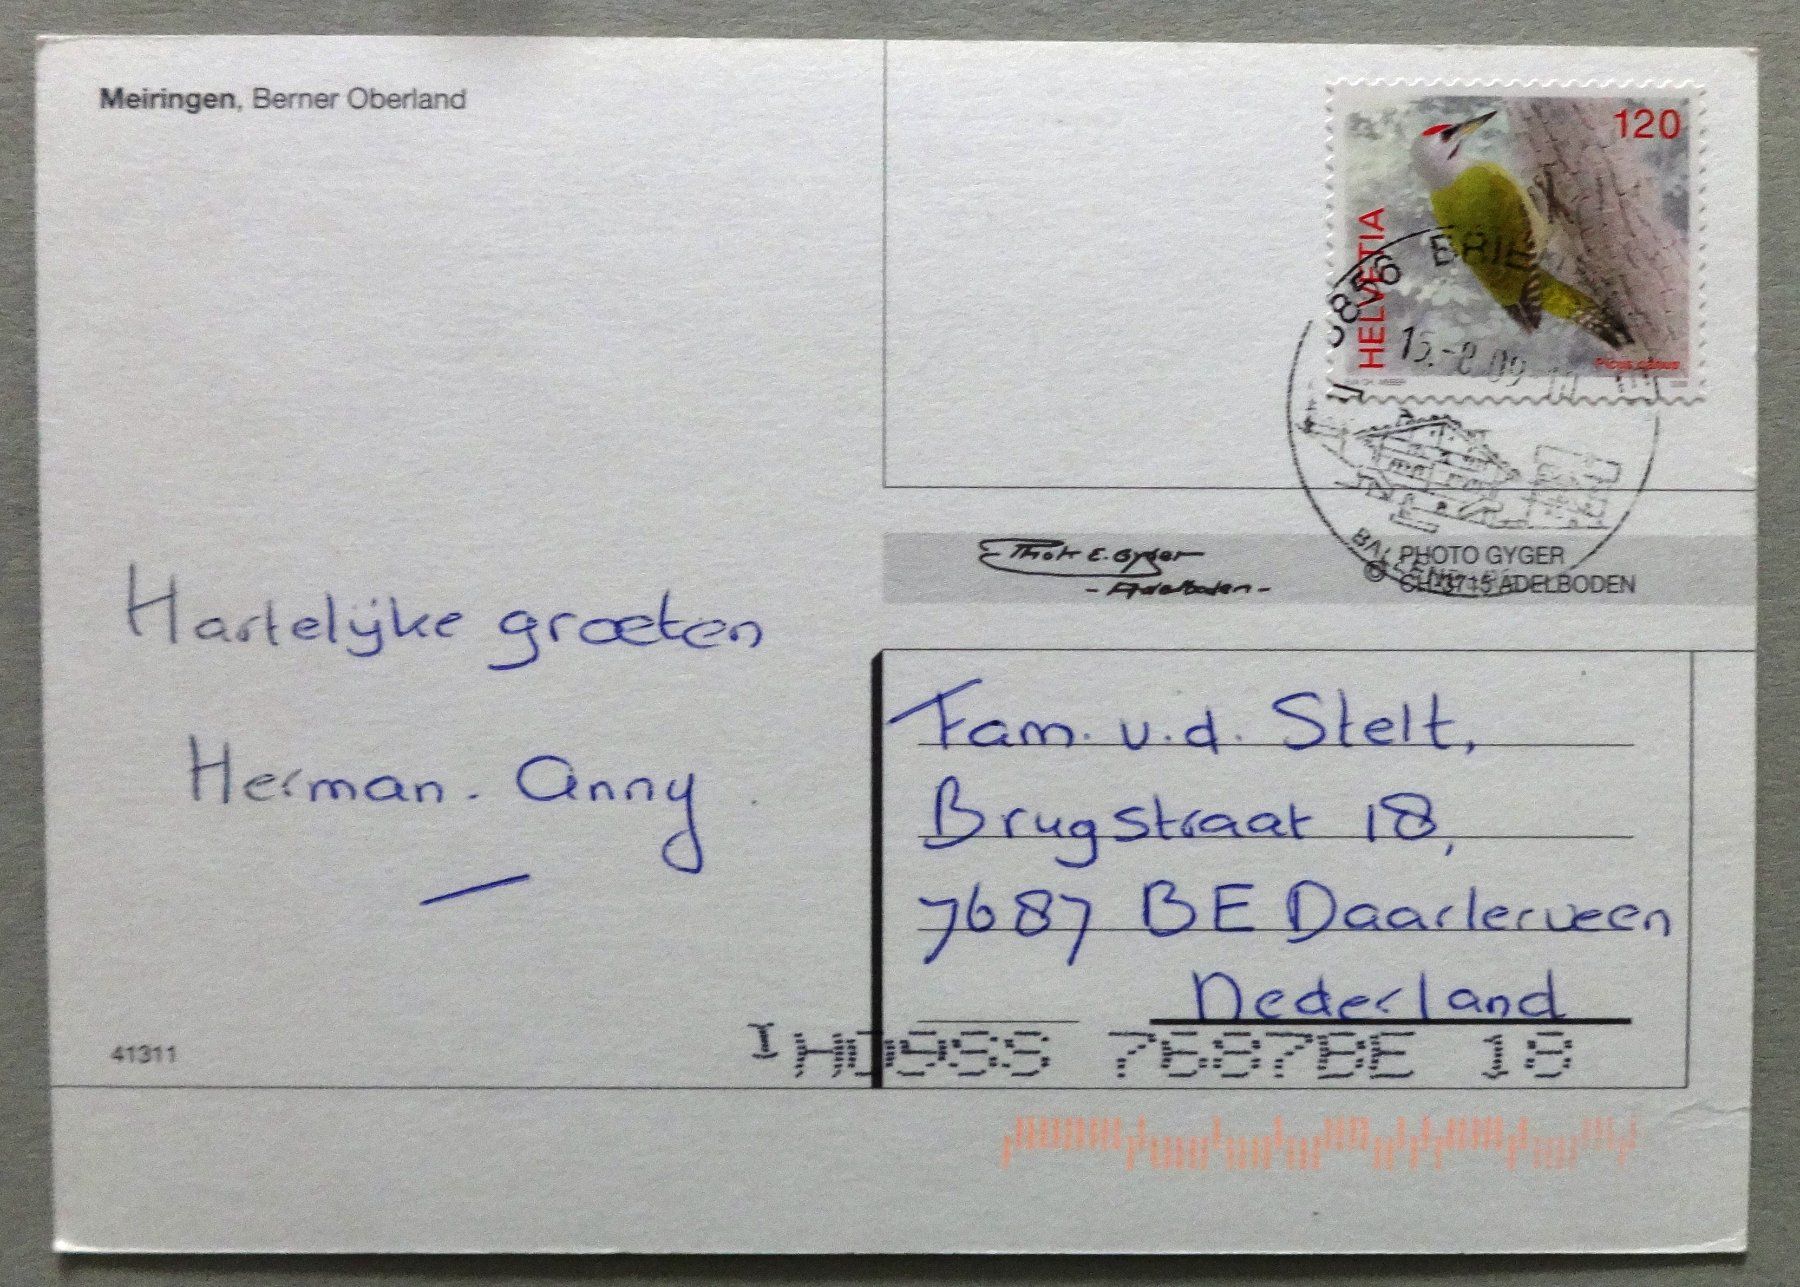 Meiringen, Berner Oberland
120
HELVETIA
Picus canus
3856 BRIE
15.-8.09
Phot E. Gyger
- Adelboden -
PHOTO GYGER
© CH-3715 ADELBODEN
Hartelijke groeten
Herman. Anny
Fam. v.d. Stelt,
Brugstraat 18,
7687 BE Daarlerveen
Nederland
41311
7687BE 18